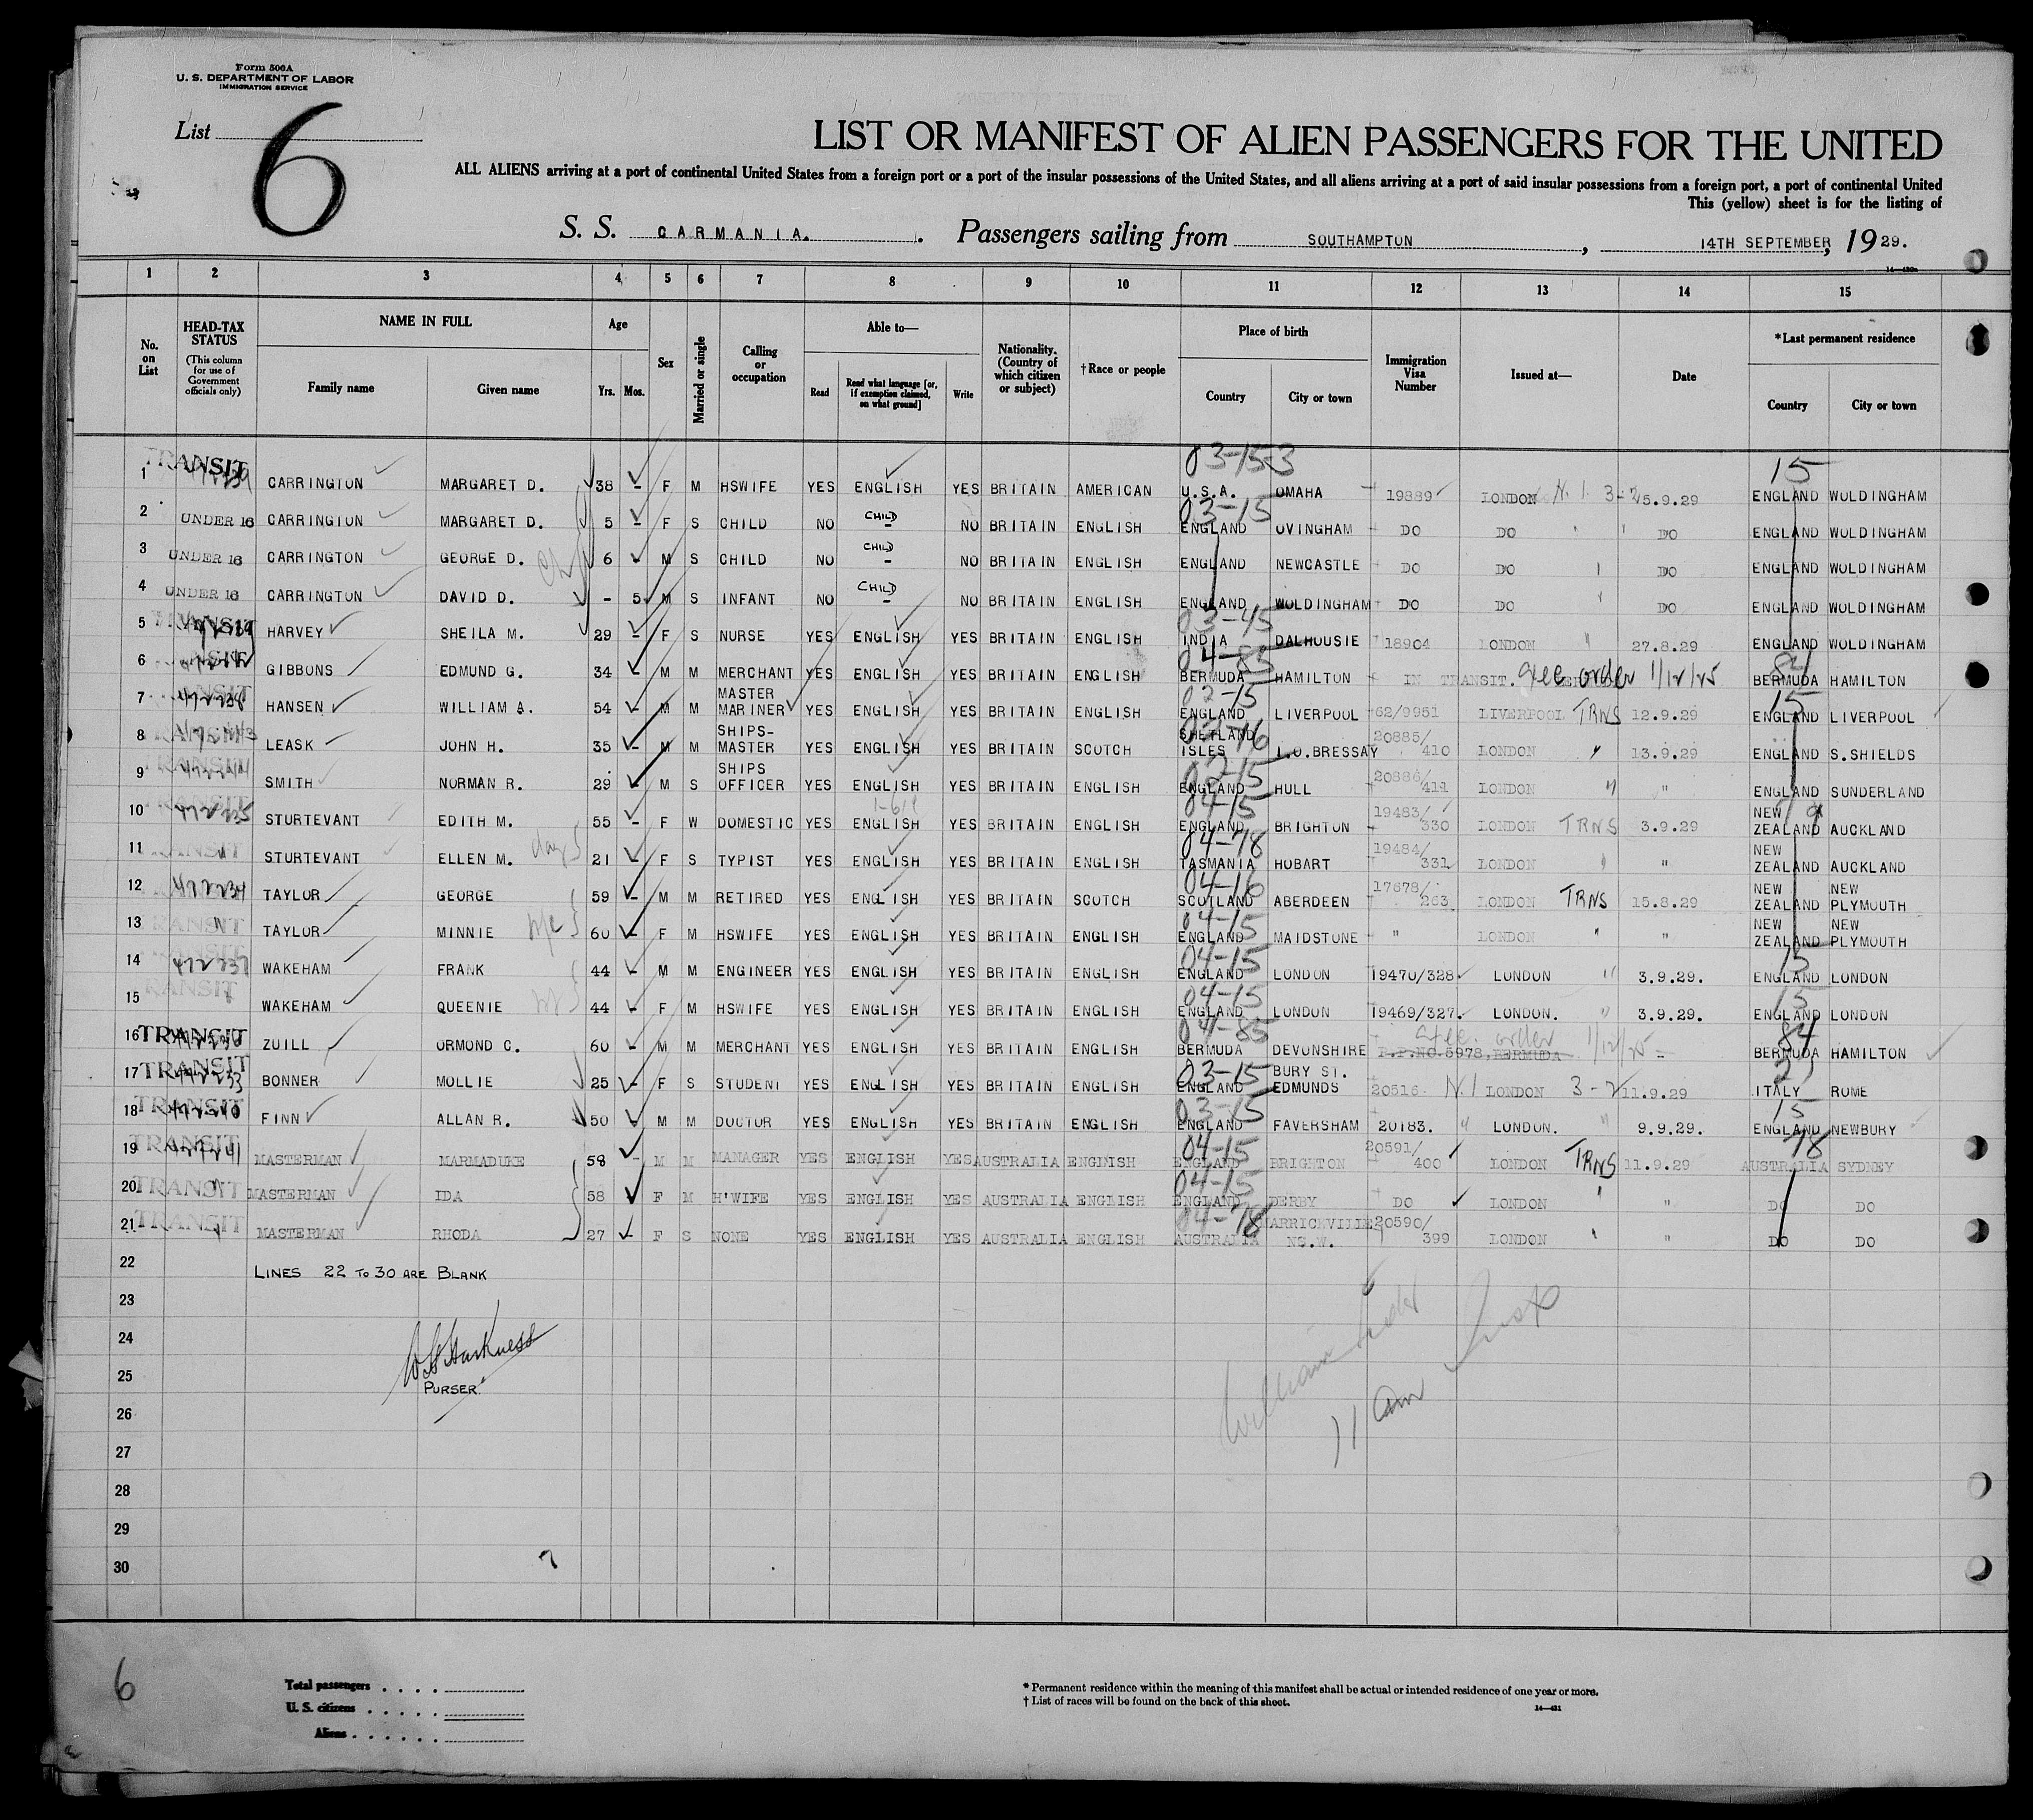 Form 500A
U. S. DEPARTMENT OF LABOR
IMMIGRATION SERVICE
List 6
LIST OR MANIFEST OF ALIEN PASSENGERS FOR THE UNITED
ALL ALIENS arriving at a port of continental United States from a foreign port or a port of the insular possessions of the United States, and all aliens arriving at a port of said insular possessions from a foreign port, a port of continental United
This (yellow) sheet is for the listing of
S. S. CARMANIA. Passengers sailing from SOUTHAMPTON, 14TH SEPTEMBER, 1929.
1 2 3 4 5 6 7 8 9 10 11 12 13 14 15
No. on List
HEAD-TAX STATUS (This column for use of Government officials only)
NAME IN FULL Family name Given name
Age Yrs. Mos.
Sex
Married or single
Calling or occupation
Able to— Read Read what language [or, if exemption claimed, on what ground] Write
Nationality. (Country of which citizen or subject)
†Race or people
Place of birth Country City or town
Immigration Visa Number
Issued at—
Date
*Last permanent residence Country City or town
1 TRANSIT CARRINGTON MARGARET D. 38 - F M HSWIFE YES ENGLISH YES BRITAIN AMERICAN 03-15-3 U.S.A. OMAHA 19889 LONDON 3-2 5.9.29 15 ENGLAND WOLDINGHAM
2 UNDER 16 CARRINGTON MARGARET D. 5 - F S CHILD NO CHILD - NO BRITAIN ENGLISH 03-15 ENGLAND OVINGHAM DO DO " DO ENGLAND WOLDINGHAM
3 UNDER 16 CARRINGTON GEORGE D. 6 - M S CHILD NO CHILD - NO BRITAIN ENGLISH ENGLAND NEWCASTLE DO DO DO ENGLAND WOLDINGHAM
4 UNDER 16 CARRINGTON DAVID D. - 5 M S INFANT NO CHILD - NO BRITAIN ENGLISH ENGLAND WOLDINGHAM DO DO DO ENGLAND WOLDINGHAM
5 TRANSIT HARVEY SHEILA M. 29 - F S NURSE YES ENGLISH YES BRITAIN ENGLISH 03-45 INDIA DALHOUSIE 18904 LONDON " 27.8.29 ENGLAND WOLDINGHAM
6 GIBBONS EDMUND G. 34 - M M MERCHANT YES ENGLISH YES BRITAIN ENGLISH 04-85 BERMUDA HAMILTON IN TRANSIT. Gee. order 1/12/25 84 BERMUDA HAMILTON
7 TRANSIT HANSEN WILLIAM A. 54 - M M MASTER MARINER YES ENGLISH YES BRITAIN ENGLISH 02-15 ENGLAND LIVERPOOL 62/9951 LIVERPOOL TRNS 12.9.29 15 ENGLAND LIVERPOOL
8 TRANSIT LEASK JOHN H. 35 - M M SHIPS-MASTER YES ENGLISH YES BRITAIN SCOTCH SHETLAND ISLES I.O.BRESSAY 20885/410 LONDON " 13.9.29 ENGLAND S.SHIELDS
9 TRANSIT SMITH NORMAN R. 29 - M S SHIPS OFFICER YES ENGLISH YES BRITAIN ENGLISH 02-15 ENGLAND HULL 20886/411 LONDON " " ENGLAND SUNDERLAND
10 TRANSIT STURTEVANT EDITH M. 55 - F W DOMESTIC YES ENGLISH YES BRITAIN ENGLISH 04-15 ENGLAND BRIGHTON 19483/330 LONDON TRNS 3.9.29 NEW ZEALAND AUCKLAND
11 TRANSIT STURTEVANT ELLEN M. 21 - F S TYPIST YES ENGLISH YES BRITAIN ENGLISH 04-78 TASMANIA HOBART 19484/331 LONDON " " NEW ZEALAND AUCKLAND
12 TAYLOR GEORGE 59 - M M RETIRED YES ENGLISH YES BRITAIN SCOTCH 04-16 SCOTLAND ABERDEEN 17678/263 LONDON TRNS 15.8.29 NEW ZEALAND NEW PLYMOUTH
13 TRANSIT TAYLOR MINNIE 60 - F M HSWIFE YES ENGLISH YES BRITAIN ENGLISH 04-15 ENGLAND MAIDSTONE " LONDON " " NEW ZEALAND NEW PLYMOUTH
14 TRANSIT 472237 WAKEHAM FRANK 44 - M M ENGINEER YES ENGLISH YES BRITAIN ENGLISH 04-15 ENGLAND LONDON 19470/328 LONDON " 3.9.29. 15 ENGLAND LONDON
15 TRANSIT WAKEHAM QUEENIE 44 - F M HSWIFE YES ENGLISH YES BRITAIN ENGLISH 04-15 ENGLAND LONDON 19469/327. LONDON. " 3.9.29. 15 ENGLAND LONDON
16 TRANSIT ZUILL ORMOND C. 60 - M M MERCHANT YES ENGLISH YES BRITAIN ENGLISH 04-85 BERMUDA DEVONSHIRE P.P.NO.5978, BERMUDA Gee. order 1/12/25 84 BERMUDA HAMILTON
17 TRANSIT BONNER MOLLIE 25 - F S STUDENT YES ENGLISH YES BRITAIN ENGLISH 03-15 ENGLAND BURY ST. EDMUNDS 20516 LONDON 3-2 11.9.29 ITALY ROME
18 TRANSIT FINN ALLAN R. 50 - M M DOCTOR YES ENGLISH YES BRITAIN ENGLISH 03-15 ENGLAND FAVERSHAM 20183. " LONDON. " 9.9.29. 15 ENGLAND NEWBURY
19 TRANSIT MASTERMAN MARMADUKE 58 - M M MANAGER YES ENGLISH YES AUSTRALIA ENGNISH 04-15 ENGLAND BRIGHTON 20591/400 LONDON TRNS 11.9.29 78 AUSTRALIA SYDNEY
20 TRANSIT MASTERMAN IDA 58 F M H'WIFE YES ENGLISH YES AUSTRALIA ENGLISH 04-15 ENGLAND DERBY DO LONDON " " DO DO
21 TRANSIT MASTERMAN RHODA 27 - F S NONE YES ENGLISH YES AUSTRALIA ENGLISH 04-78 AUSTRALIA MARRICKVILLE NS.W. 20590/399 LONDON " " DO DO
22 LINES 22 TO 30 ARE BLANK
23
24
25
PURSER.
26
11 am
27
28
29
30
6
Total passengers
U. S. citizens
Aliens
* Permanent residence within the meaning of this manifest shall be actual or intended residence of one year or more.
† List of races will be found on the back of this sheet.